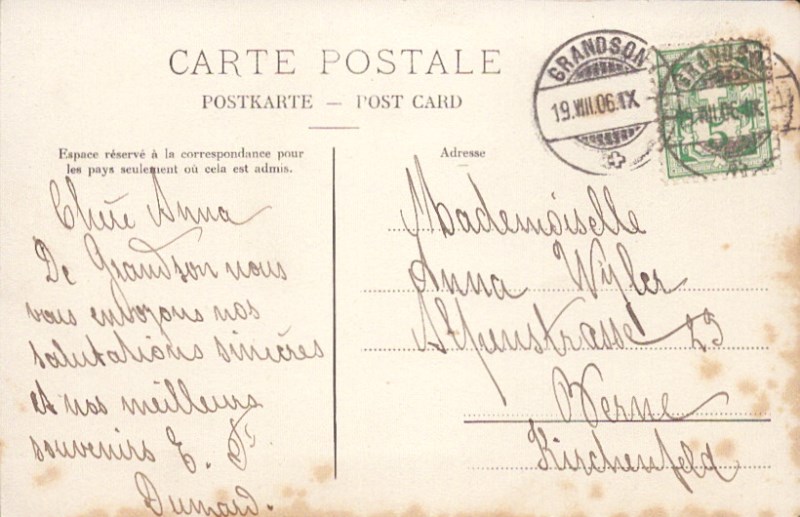 CARTE POSTALE
POSTKARTE — POST CARD
GRANDSON
19.VIII.06.IX
GRANDSON
5
Espace réservé à la correspondance pour
les pays seulement où cela est admis.
Adresse
Chère Anna
De Grandson nous
vous envoyons nos
salutations sincères
et nos meilleurs
souvenirs E.
Mademoiselle
Anna Wyler
Alpenstrasse 29
Berne
Kirchenfeld